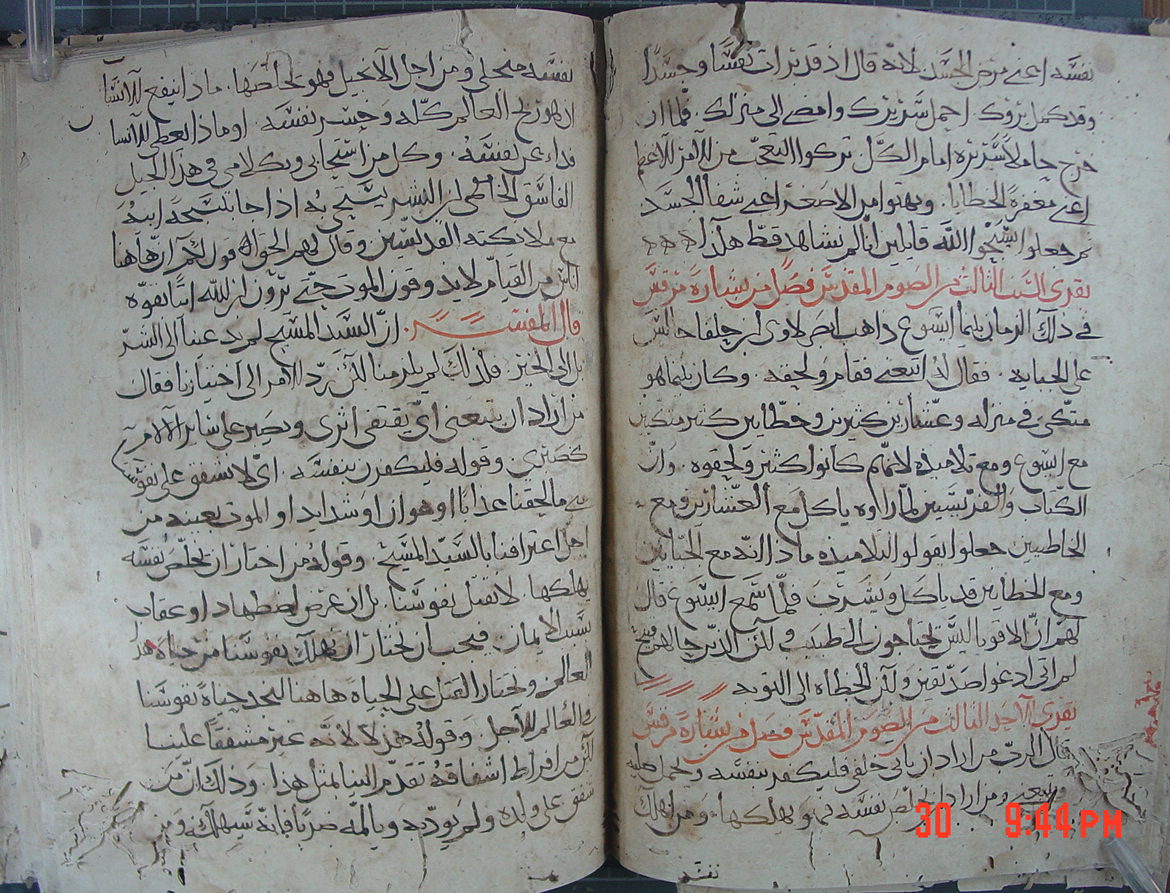 نفسه اعني مرض الجسد لانه قال اذ قد برات نفسًا وجسدًا
وقد كمل بروك احمل سريرك وامضى الى منزلك فلما ان
خرج حاملا سريره امام الكل تركوا التعجب من الامر الاعظم
اعني مغفرة الخطايا وبهتوا من الاصغر اعني شفا الجسد
ثم جعلوا يسبحوا الله قايلين اننا لم نشاهد قط هكذا
يقرى السبت الثالث من الصوم المقدس فصل من بشارة مرقس
في ذلك الزمان بينما ايسوع ذاهب ابصر لاوى ابن حلفا جالس
على الجبايه فقال له اتبعني فقام ولحقه وكان بينما هو
متكي في منزله وعشارين كثيرين وخطايين كثير متكيين
مع ايسوع ومع تلاميذه لانهم كانوا كثير ولحقوه وان
الكتاب والفريسيين لما راوه ياكل مع العشارين ومع
الخاطيين جعلوا يقولوا لتلاميذه ماذا انه مع الجبايين
ومع الخطايين قد ياكل ويشرب فلما سمع ايسوع قال
لهم ان الاقويا ليس يحتاجون الى طبيب لكن الذين حالهم قبيح
لم اتى ادعوا صديقين ولكن الخطاه الى التوبه
يقرى الاحد الثالث من الصوم المقدس فصل من بشارة مرقس
قال الرب من اراد ان ياتي خلفي فليكفر بنفسه ويحمل صليبه
ويتبعني ومن اراد ان يخلص نفسه فهو يهلكها ومن اهلك
نفسه
نفسه من اجلي ومن اجل الانجيل فهو يخلصها ماذا ينفع للانسان
ان هو ربح العالم كله وخسر نفسه او ماذا يعطي الانسان
فدا عن نفسه وكل من استحا بي وبكلامي في هذا الجيل
الفاسق الخاطي ابن البشر يستحي به اذا جا بتسبحة ابيه
مع ملايكته القديسين وقال لهم الحق اقول لكم ان هاهنا
اناس من القيام لا يدوقون الموت حتى يرون ان لله اتيا بقوه
قال المفسر ان السيد المسيح لم يدعنا الى الشر
بل الى الخير فلذلك لم يلزمنا لكن رد الامر الى اختيارنا فقال
من اراد ان يتبعني اي يقتفى اثري ويصبر على ساير الالام
كصبري وقوله فليكفر بنفسه اي لا يشفق على نفوسنا
في ما لحقنا عذابا او هوان او شدايد او الموت بعينه من
اجل اعترافنا بالسيد المسيح وقوله من اختار ان يخلص نفسه
يهلكها لا نقتل نفوسنا بل ان عرض اضطهاد او عقاب
بسبب الايمان فيجب ان نختار ان نهلك نفوسنا من حياة هذا
العالم ونختار القتل على الحياة هاهنا لنجد حياة نفوسنا
في العالم الاجل وقوله هذا لا لانه غير مشفقا علينا
لكن من افراط اشفاقه تقدم الينا بمثل هذا وذلك ان من
شفق على ولده ولم يودبه ويالمه ضربا فانه سيهلكه ومن
30 9:44 PM